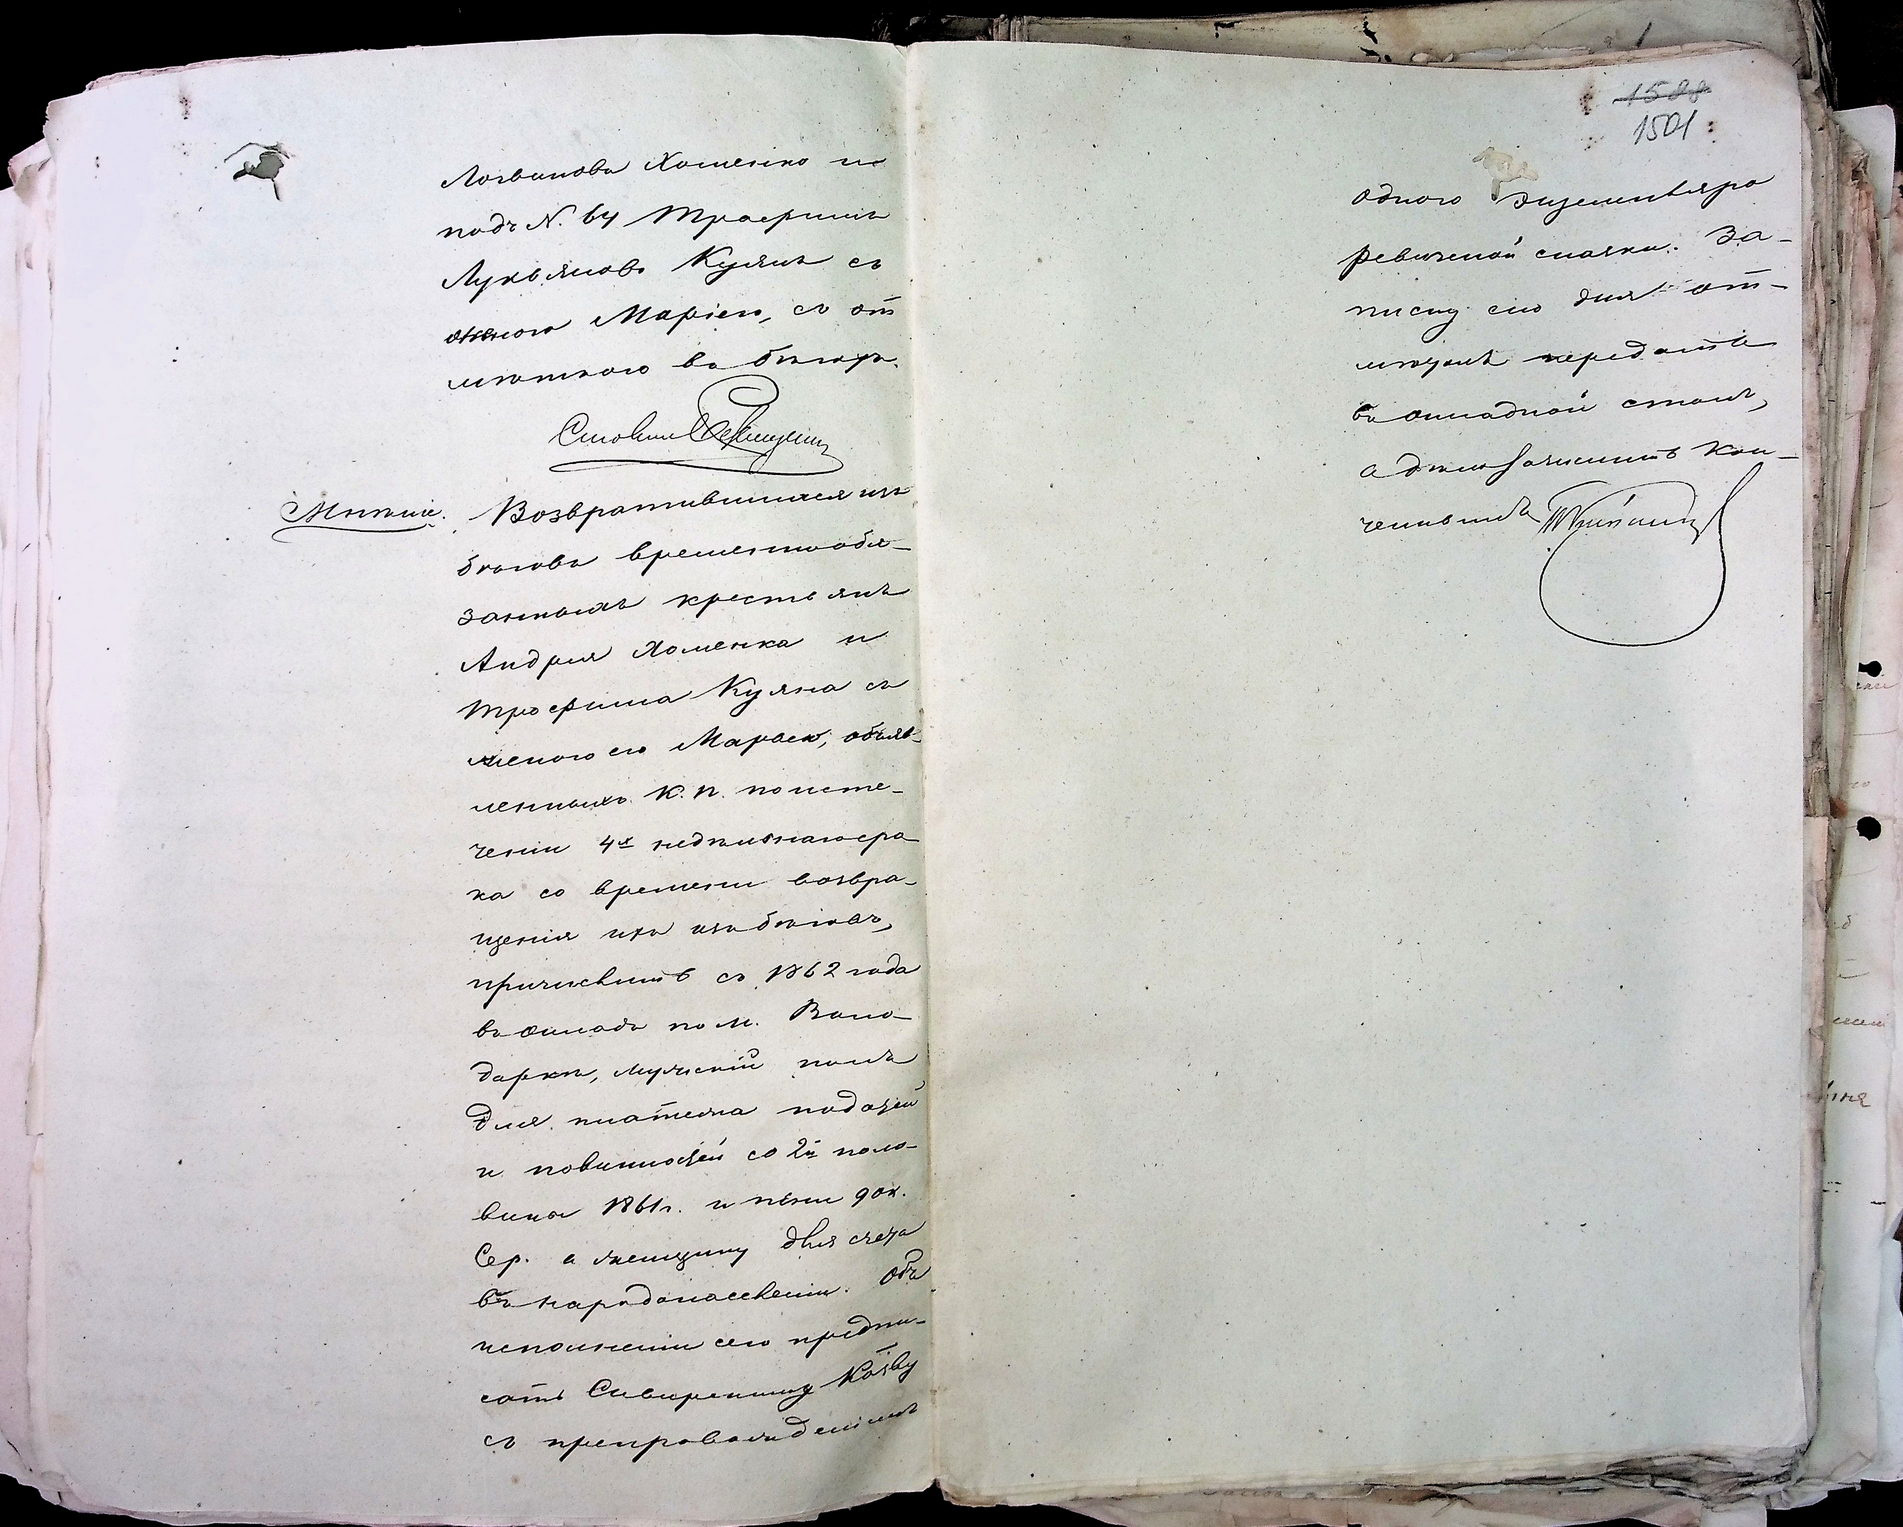 Логвинова Хоменко и
подъ N. 64 Трофимъ
Лукьяновъ Кузянъ съ
женою Маріею, съ от
мѣткою въ бѣгахъ.
Мнѣніе. Возвратившихся изъ
бѣговъ временнообя-
занныхъ крестьянъ
Андрея Хоменка и
Трофима Кузяна съ
женою его Марьею, объяв-
ленныхъ К. П. по исте-
ченіи 4х недѣльнаго сро
ка со времени возвра-
щенія ихъ изъ бѣговъ,
причислить съ 1862 года
въ окладъ по м. Воло-
даркѣ, мужскій полъ
для платежа податей
и повинностей со 2й поло-
вины 1861 г. и пѣни 9 ок.
Сер. а женщину для счета
въ народонаселеніи. Объ
исполненіи сего предпи-
сать Сквирскому Казву
съ препровожденіемъ
1588
1501
одного экземпляра
ревизской сказки. За-
писку сію для от-
мѣтки передать
въ окладной столъ,
а дѣло зачислить кон-
ченнымъ